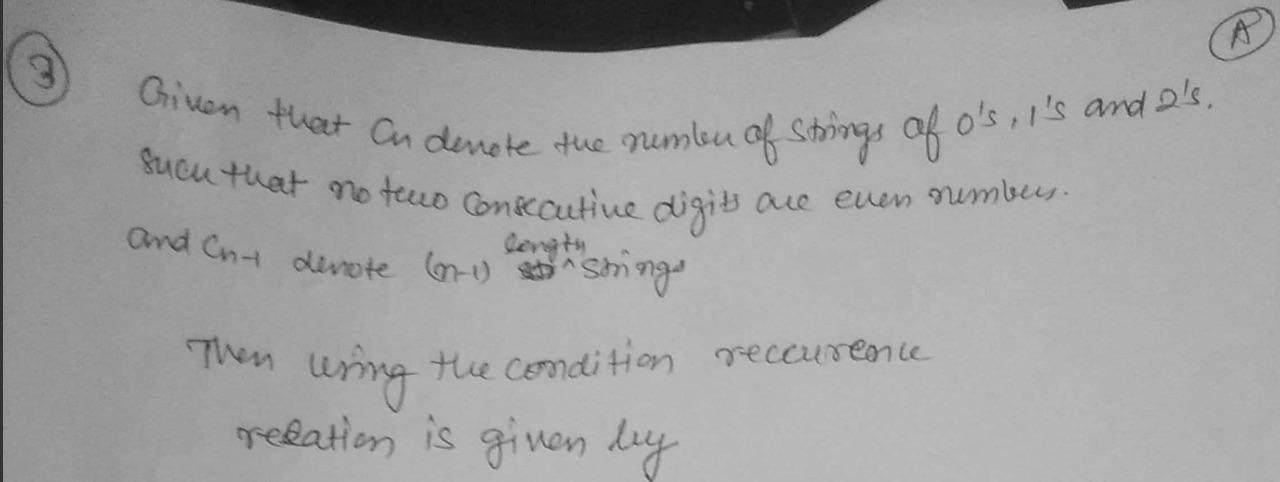 A
3
Given that Cn denote the number of strings of 0's, 1's and 2's.
such that no two consecutive digits are even numbers.
and Cn-1 denote (n-1) length strings
Then using the condition reccurence
relation is given by